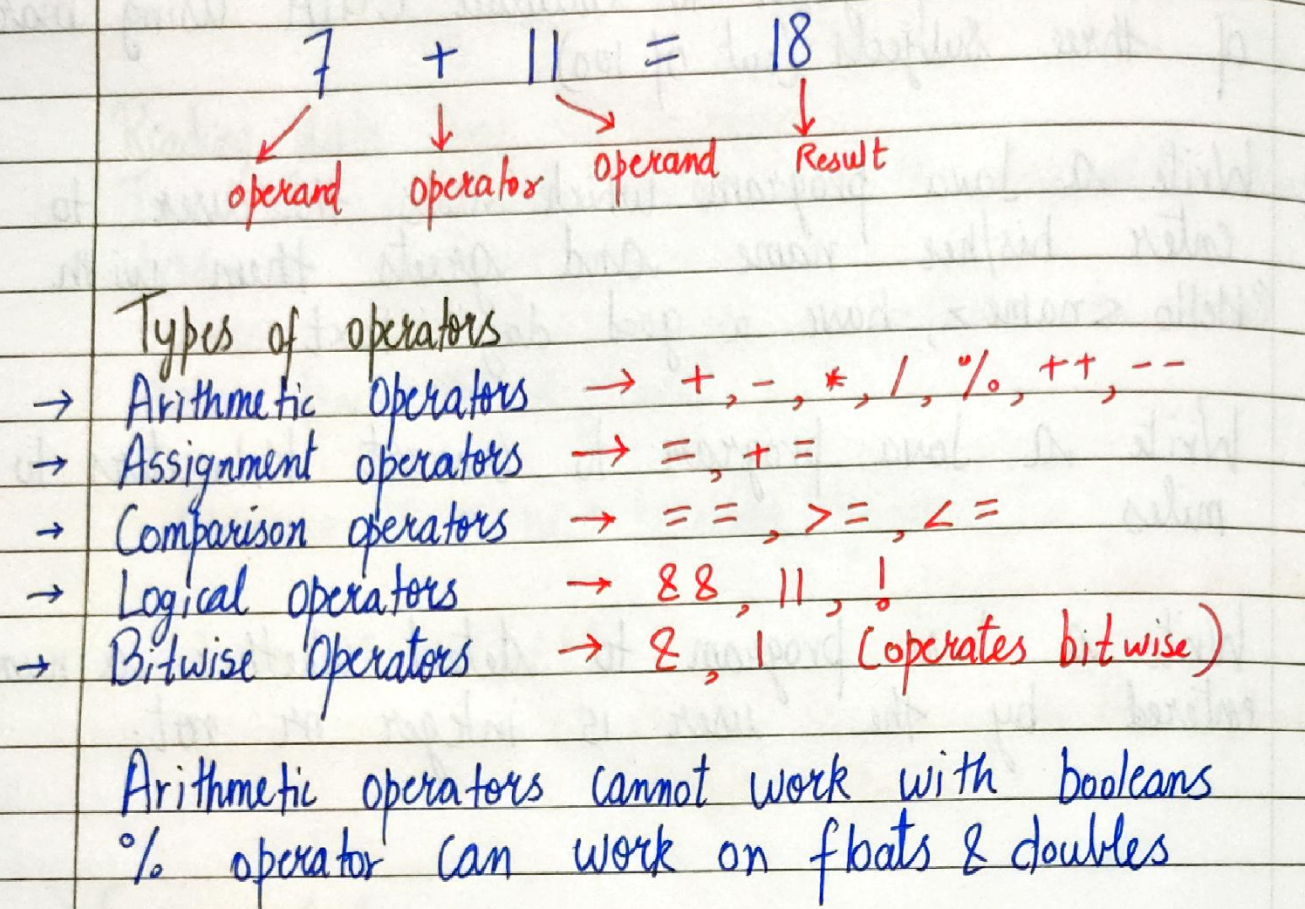 7 + 11 = 18
operand operator operand Result
Types of operators
→ Arithmetic Operators → +, -, *, /, %, ++, --
→ Assignment operators → =, +=
→ Comparison operators → ==, >=, <=
→ Logical operators → &&, ||, !
→ Bitwise Operators → &, | (operates bitwise)
Arithmetic operators cannot work with booleans
% operator can work on floats & doubles